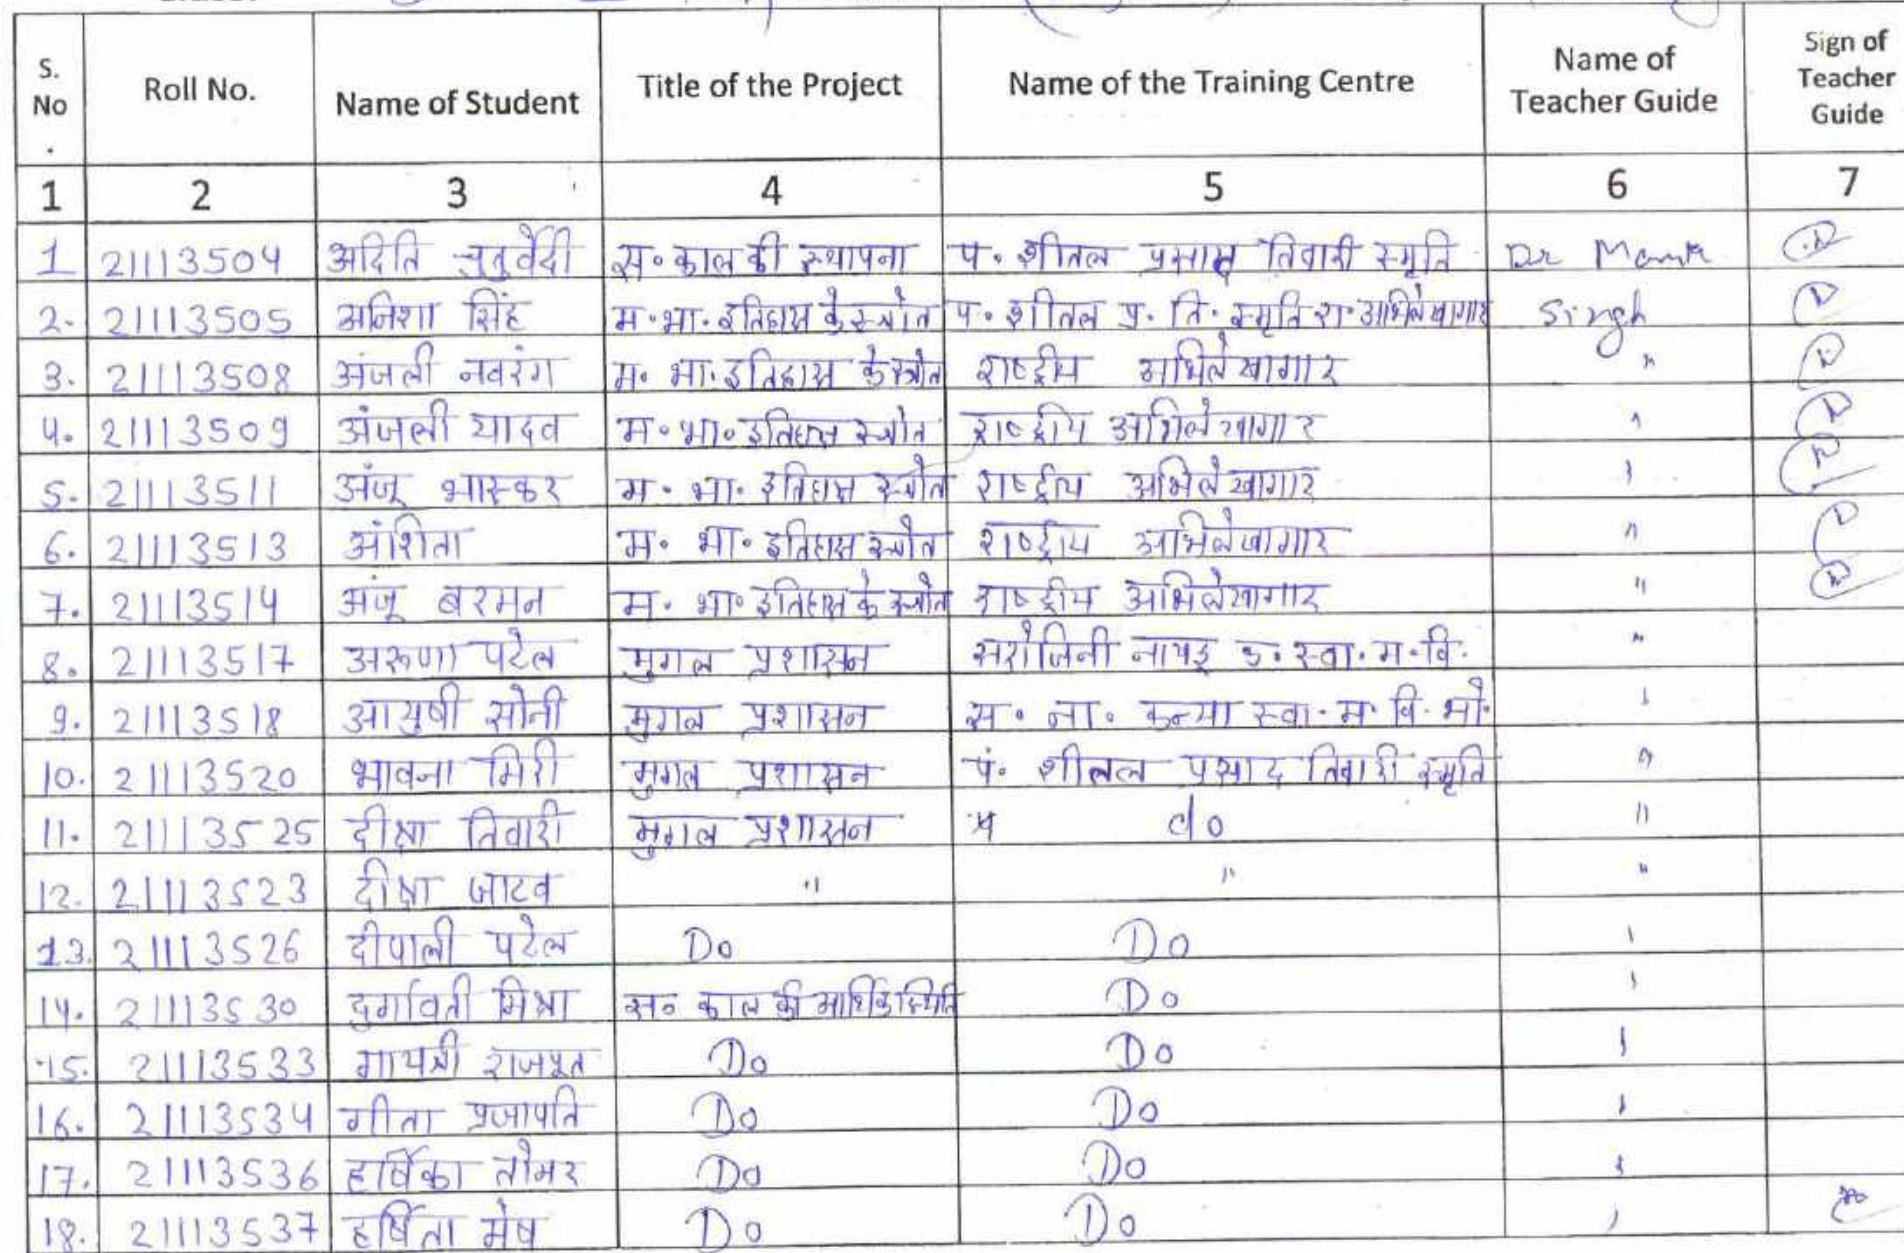 S. No. | Roll No. | Name of Student | Title of the Project | Name of the Training Centre | Name of Teacher Guide | Sign of Teacher Guide
1 | 2 | 3 | 4 | 5 | 6 | 7
1 | 21113504 | अदिति चतुर्वेदी | स॰ काल की स्थापना | प॰ शीतल प्रसाद तिवारी स्मृति | Dr Mamta
2. | 21113505 | अनिशा सिंह | म॰ भा॰ इतिहास के स्त्रोत | प॰ शीतल प्र॰ ति॰ स्मृति रा॰ अभिलेखागार | Singh
3. | 21113508 | अंजली नवरंग | म॰ भा॰ इतिहास के स्त्रोत | राष्ट्रीय अभिलेखागार | "
4. | 21113509 | अंजली यादव | म॰ भा॰ इतिहास स्त्रोत | राष्ट्रीय अभिलेखागार | "
5. | 21113511 | अंजू भास्कर | म॰ भा॰ इतिहास स्त्रोत | राष्ट्रीय अभिलेखागार | "
6. | 21113513 | अंशिता | म॰ भा॰ इतिहास स्त्रोत | राष्ट्रीय अभिलेखागार | "
7. | 21113514 | अंजू बरमन | म॰ भा॰ इतिहास के स्त्रोत | राष्ट्रीय अभिलेखागार | "
8. | 21113517 | अरूणा पटेल | मुगल प्रशासन | सरोजिनी नायडू क॰ स्वा॰ म॰ वि॰ | "
9. | 21113518 | आयुषी सोनी | मुगल प्रशासन | स॰ ना॰ कन्या स्वा॰ म॰ वि॰ भो॰ | "
10. | 21113520 | भावना मिरी | मुगल प्रशासन | पं॰ शीतल प्रसाद तिवारी स्मृति | "
11. | 21113525 | दीक्षा तिवारी | मुगल प्रशासन | do | "
12. | 21113523 | दीक्षा जाटव | " | " | "
13. | 21113526 | दीपाली पटेल | Do | Do | "
14. | 21113530 | दुर्गावती मिश्रा | स॰ काल की आर्थिक स्थिति | Do | "
15. | 21113533 | गायत्री राजपूत | Do | Do | "
16. | 21113534 | गीता प्रजापति | Do | Do | "
17. | 21113536 | हर्षिका तोमर | Do | Do | "
18. | 21113537 | हर्षिता मेष | Do | Do | "